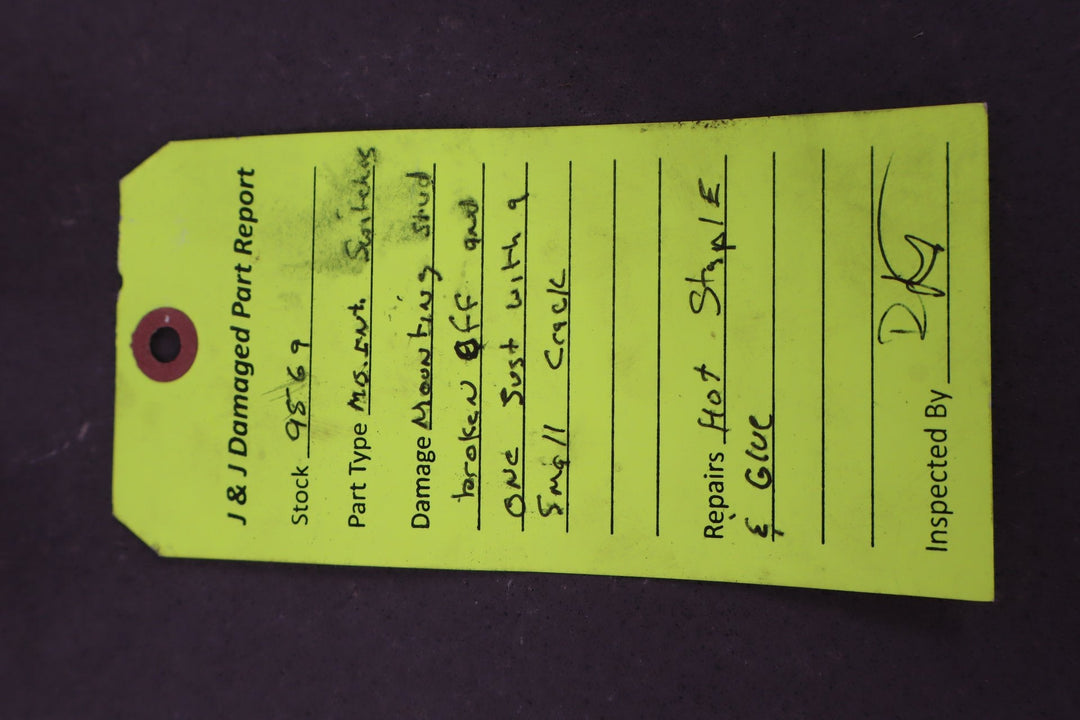 J & J Damaged Part Report
Stock 9569
Part Type Ms. Int. Switches
Damage Mounting stud
broken off and
one Just with a
Small Crack
Repairs Hot StaplE
& Glue
Inspected By